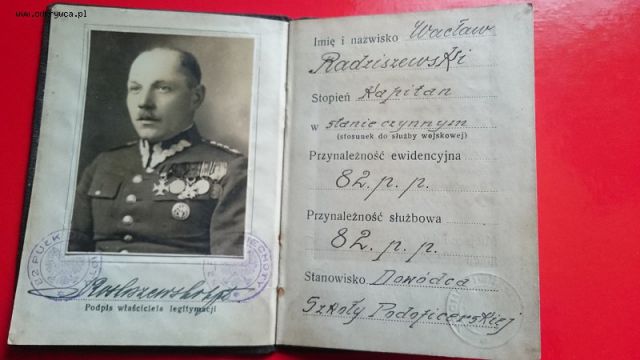 www.odkrywca.pl
Imię i nazwisko Wacław
Radziszewski
Stopień Kapitan
w stanie czynnym
(stosunek do służby wojskowej)
Przynależność ewidencyjna
82. p. p.
Przynależność służbowa
82. p. p.
Stanowisko Dowódca
Szkoły Podoficerskiej
82 PUŁK
Podpis właściciela legitymacji